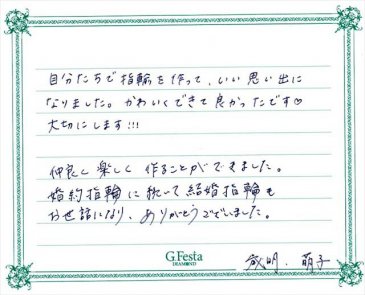 自分たちで指輪を作って、いい思い出に
なりました。かわいくできて良かったです♡
大切にします!!!
仲良く楽しく作ることができました。
婚約指輪に続いて結婚指輪も
お世話になり、ありがとうございました。
G.Festa
DIAMOND
成明、萌子